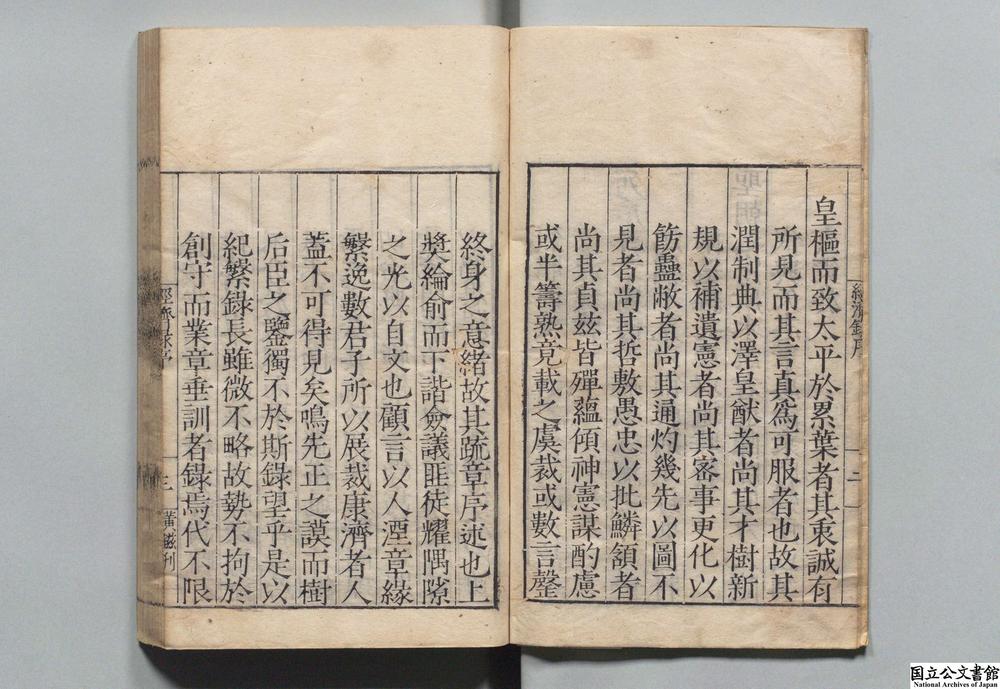 皇樞而致太平於累葉者其衷誠有
所見而其言真爲可服者也故其
潤制典以澤皇猷者尚其才樹新
規以補遺憲者尚其寀事更化以
飭蠱敝者尚其通灼幾先以圖不
見者尚其哲敷愚忠以批鱗頷者
尚其貞玆皆殫蘊傾神憲謀酌慮
或半籌熟竟載之虞裁或數言罄
經濟錄序
二
終身之意緒故其疏章序述也上
獎綸俞而下諧僉議匪徒耀隅隙
之光以自文也顧言以人湮章緣
繫逸數君子所以展裁康濟者人
蓋不可得見矣鳴先正之謨而樹
后臣之鑒獨不於斯錄望乎是以
紀繫錄長雖微不略故勢不拘於
創守而業章垂訓者錄焉代不限
經濟錄序
三
刊
国立公文書館
National Archives of Japan